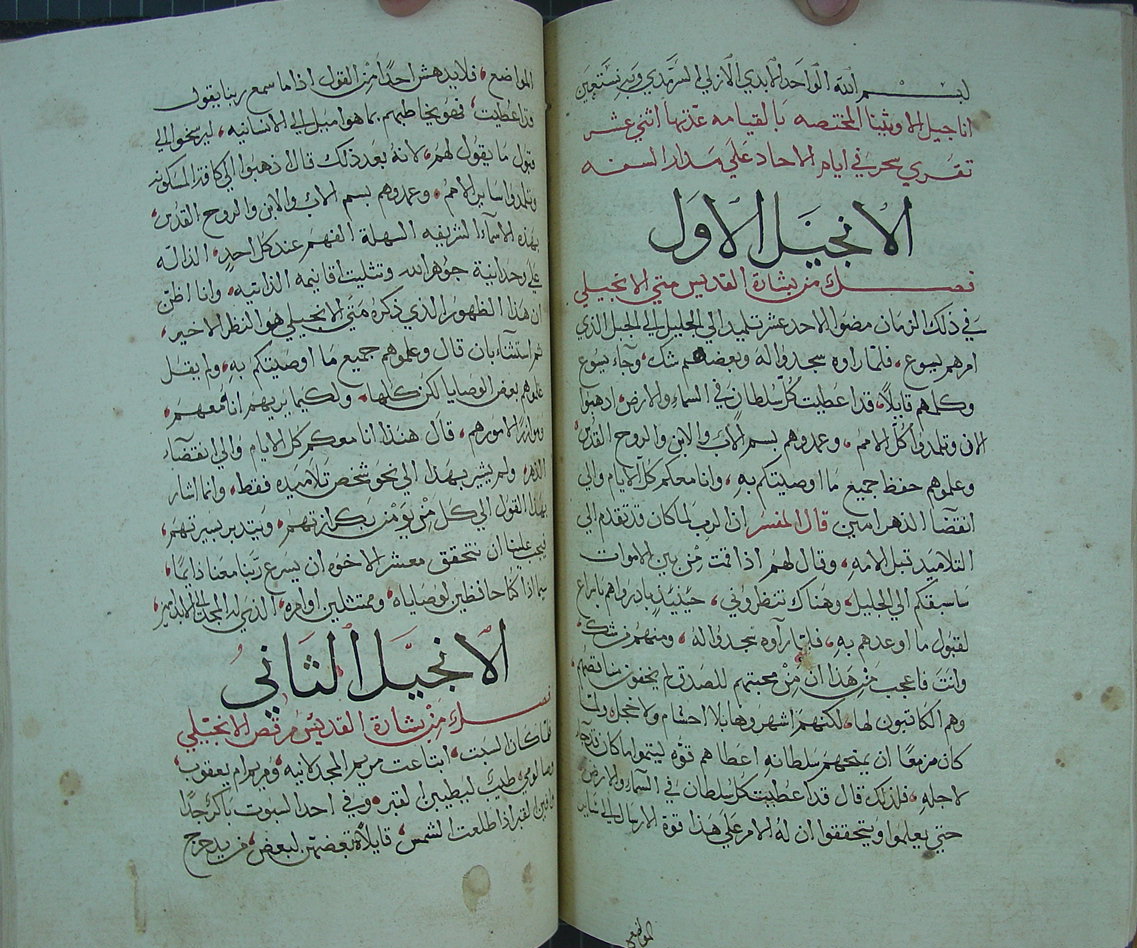 بسم الله الواحد الابدي الازلي السرمدي وبه نستعين
اناجيل الاوثينا المختصه بالقيامه عدتها اثني عشر
تقري سحر في ايام الاحاد علي مدار السنه
الانجيل الاول
فصل من بشارة القديس متي الانجيلي
في ذلك الزمان مضوا الاحد عشر تلميد الي الجليل الي الجبل الذي
امرهم يسوع، فلما راوه سجدوا له وبعضهم شك، وجاء يسوع
وكلمهم قايلاً، قد اعطيت كل سلطان في السماء والارض، ادهبوا
الان وتلمدوا كل الامم، وعمدوهم بسم الاب والابن والروح القدس
وعلموهم حفظ جميع ما اوصيتكم به، وانا معكم كل الايام والي
انقضا الدهر امين قال المفسر ان الرب لما كان قد تقدم الي
التلاميد قبل الامه، وقال لهم اذا قمت من بين الاموات
ساسبقكم الي الجليل، وهناك تنظروني، حينيذ بادروا هم باسراع
لقبول ما اوعدهم به، فلما رآوه سجدوا له، ومنهم من شك،
وانت فاعجب من هذا ان من محبتهم للصدق لم يخفون نقايصهم
وهم الكاتبون لها، لكنهم اشهروها بلا احتشام ولا خجل، ولما
كان مزمعًا ان يمنحهم سلطانه اعطاهم قوه ليتموا ما كان قد جاء
لاجله، فلذلك قال قد اعطيت كل سلطان في السماء والارض
حتي يعلموا ويتحققوا ان له الامر علي هذا قوة الارسال الي ساير
المواضع
المواضع، فلا يدهش احدًا من القول اذا ما سمع ربنا يقول
قد اعطيت، فهو يخاطبهم بما هو اميل الي الانسانيه، ليسرعوا الي
قبول ما يقول لهم، لانه بعد ذلك قال ادهبوا الي كافة المسكونه
وتلمدوا ساير الامم، وعمدوهم بسم الاب والابن والروح القدس،
بهذه الاسماء الشريفه السهلة الفهم عند كل احدٍ، الداله
علي وحدانية جوهر الله وتثليت اقانيمه الداتيه، وانا اظن
ان هذا الظهور الذي ذكره متي الانجيلي هو النظر الاخير،
ثم استثناء بان قال وعلموهم جميع ما اوصيتكم به، ولم يقل
علموهم بعض الوصايا لكن كلها، ولكيما يريهم انه معهم،
وموازر لامورهم، قال هنذا انا معكم كل الايام والي انقضاء
الدهر، ولم يشير بهذا الي نحو شخص تلاميده فقط، وانما اشار
بهذا القول الي كل من يومن بكرازتهم، ويتدبر بسيرتهم،
فيجب علينا ان نتحقق معشر الاخوه ان يسوع ربنا معنا دايمًا،
سيما اذا كنا حافظين لوصاياه، وممتثلين اوامره، الذي له المجد الي ابد الدهر،
الانجيل الثاني
فصل من بشارة القديس مرقص الانجيلي
لما كان السبت، ابتاعت مريم المجدلانيه، ومريم ام يعقوب،
وصالومي، طيبًا ليطيبن القبر، وفي احدا السبوت باكر جدًا
وافين القبر اذا طلعت الشمس، قايلاة بعضهن لبعض، من يدحرج